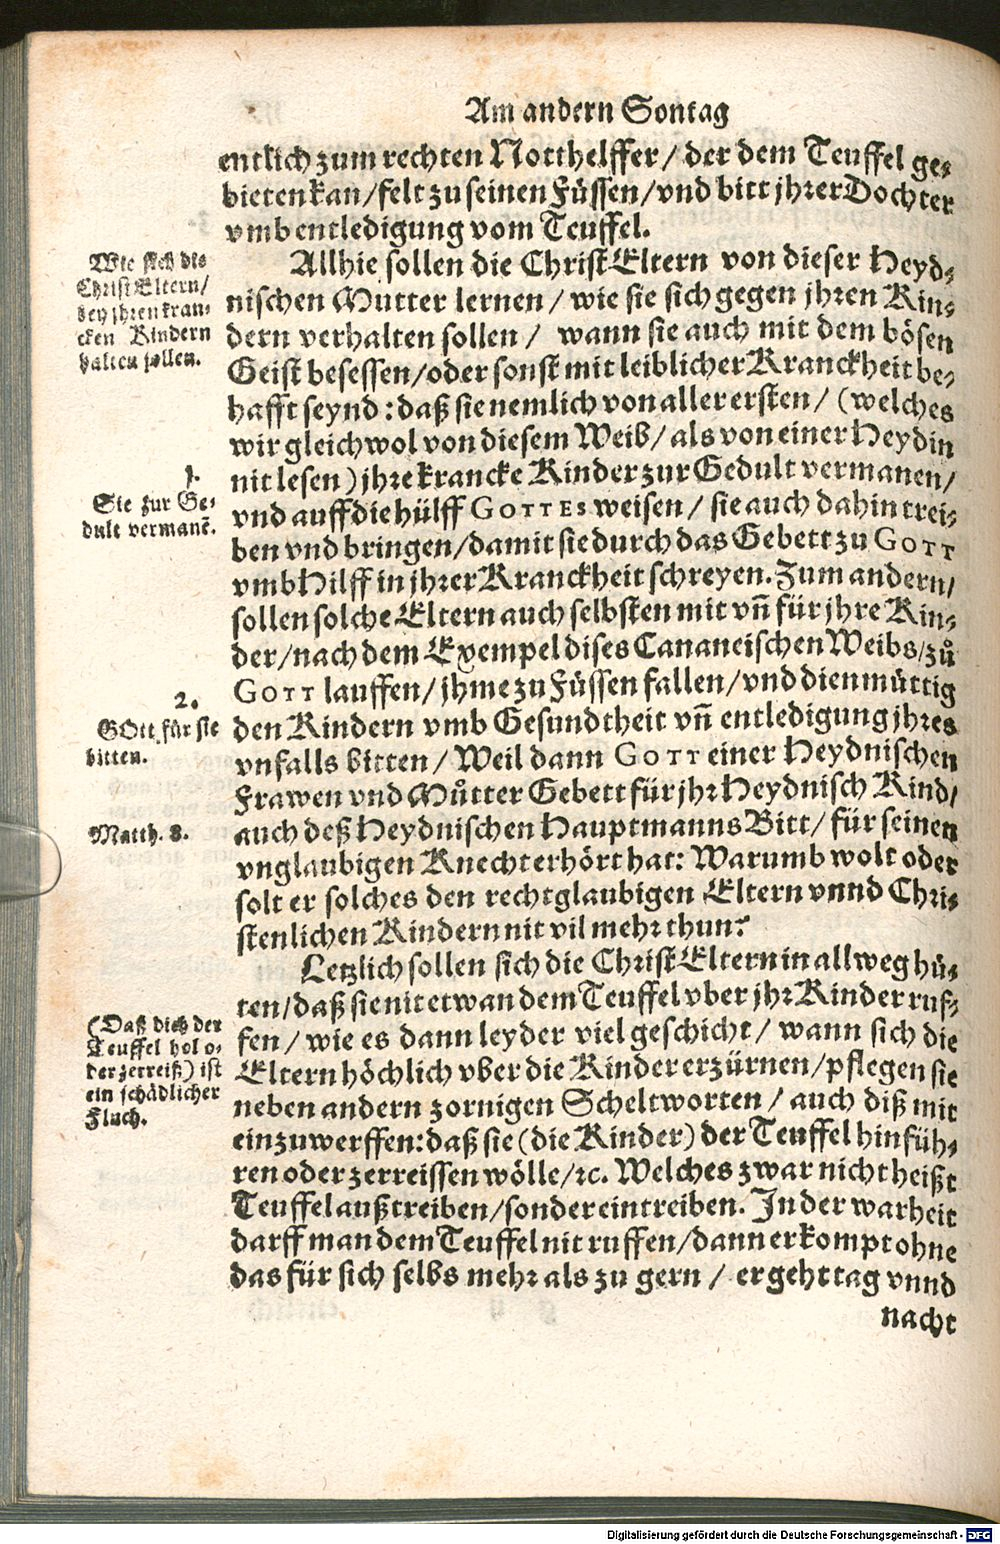 Am andern Sontag
entlich zum rechten Notthelffer / der dem Teuffel ge-
bieten kan / felt zu seinen Füssen / vnd bitt jhrer Dochter
vmb entledigung vom Teuffel.
Wie sich die
Christ Eltern /
bey jhren kran-
cken Kindern
halten sollen.
Allhie sollen die Christ Eltern von dieser Heyd-
nischen Mutter lernen / wie sie sich gegen jhren Kin-
dern verhalten sollen / wann sie auch mit dem bösen
Geist besessen / oder sonst mit leiblicher Kranckheit be-
hafft seynd : daß sie nemlich von aller ersten / (welches
wir gleichwol von diesem Weib / als von einer Heydin
1.
Sie zur Ge-
dult vermanē.
nit lesen ) jhre krancke Kinder zur Gedult vermanen /
vnd auff die hülff GOTTES weisen / sie auch dahin trei-
ben vnd bringen / damit sie durch das Gebett zu GOTT
vmb Hilff in jhrer Kranckheit schreyen. Zum andern /
sollen solche Eltern auch selbsten mit vñ für jhre Kin-
der / nach dem Exempel dises Cananeischen Weibs / zů
2.
GOtt für sie
bitten.
GOTT lauffen / jhme zu Füssen fallen / vnd dienmüttig
den Kindern vmb Gesundtheit vñ entledigung jhres
vnfalls bitten / Weil dann GOTT einer Heydnischen
Frawen vnd Můtter Gebett für jhr Heydnisch Kind /
Matth. 8.
auch deß Heydnischen Hauptmanns Bitt / für seinen
vnglaubigen Knecht erhört hat: Warumb wolt oder
solt er solches den rechtglaubigen Eltern vnnd Chri-
stenlichen Kindern nit vil mehr thun?
Letzlich sollen sich die Christ Eltern in allweg hü-
ten / daß sie nit etwan dem Teuffel vber jhr Kinder ruf-
(Daß dich der
Teuffel hol o-
der zerreiß) ist
ein schädlicher
Fluch.
fen / wie es dann leyder viel geschicht / wann sich die
Eltern höchlich vber die Kinder erzürnen / pflegen sie
neben andern zornigen Scheltworten / auch diß mit
einzuwerffen: daß sie (die Kinder) der Teuffel hinfüh-
ren oder zerreissen wölle / ꝛc. Welches zwar nicht heißt
Teuffel außtreiben / sonder eintreiben. In der warheit
darff man dem Teuffel nit ruffen / dann er kompt ohne
das für sich selbs mehr als zu gern / er geht tag vnnd
nacht
Digitalisierung gefördert durch die Deutsche Forschungsgemeinschaft - DFG